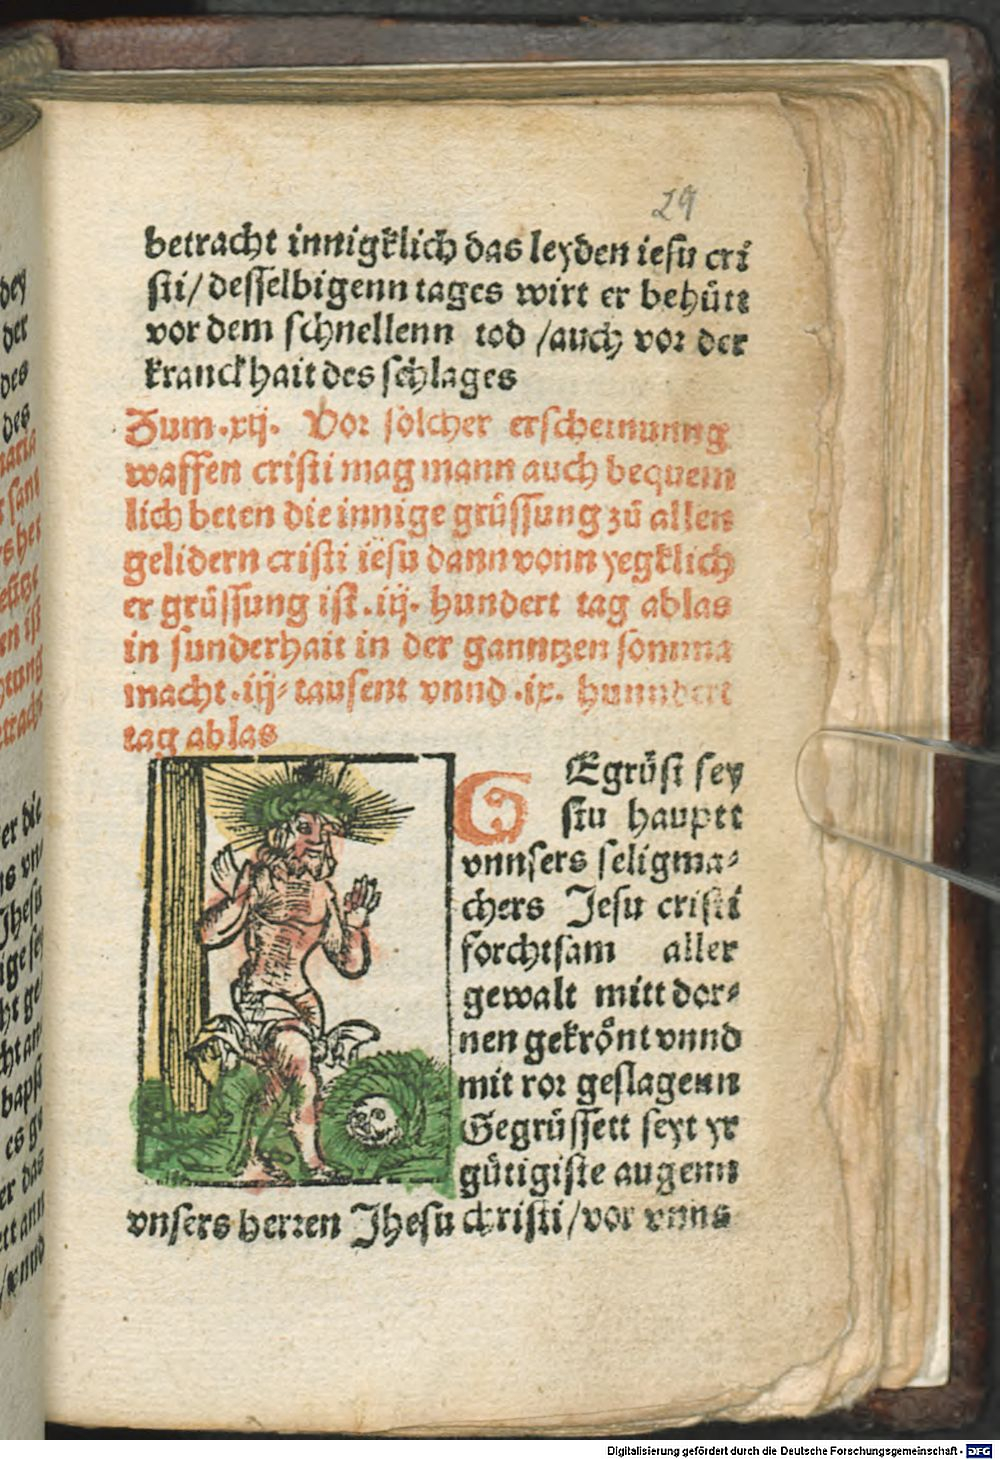 29
betracht innigklich das leyden iesu cri
sti/ desselbigenn tages wirt er behütt
vor dem schnellenn tod /auch vor der
kranckhait des schlages
Zum .xij. Vor solcher erscheinunng
waffen cristi mag mann auch bequem
lich beten die innige grüssung zů allen
gelidern cristi iesu dann vonn yegklich
er grüssung ist .iij. hundert tag ablas
in sunderhait in der ganntzen somma
macht .iij. tausent vnnd .ix. hunndert
tag ablas
GEgrüst sey
stu hauptt
vnnsers seligma⸗
chers Jesu cristi
forchtsam aller
gewalt mitt dor⸗
nen gekrönt vnnd
mit ror geslagenn
Gegrüssett seyt yr
gütigiste augenn
vnsers herren Jhesu christi/vor vnns
dey
der
des
des
maria
sant
er die
vn/
Jhesu
bapst
er das
Digitalisierung gefördert durch die Deutsche Forschungsgemeinschaft - DFG